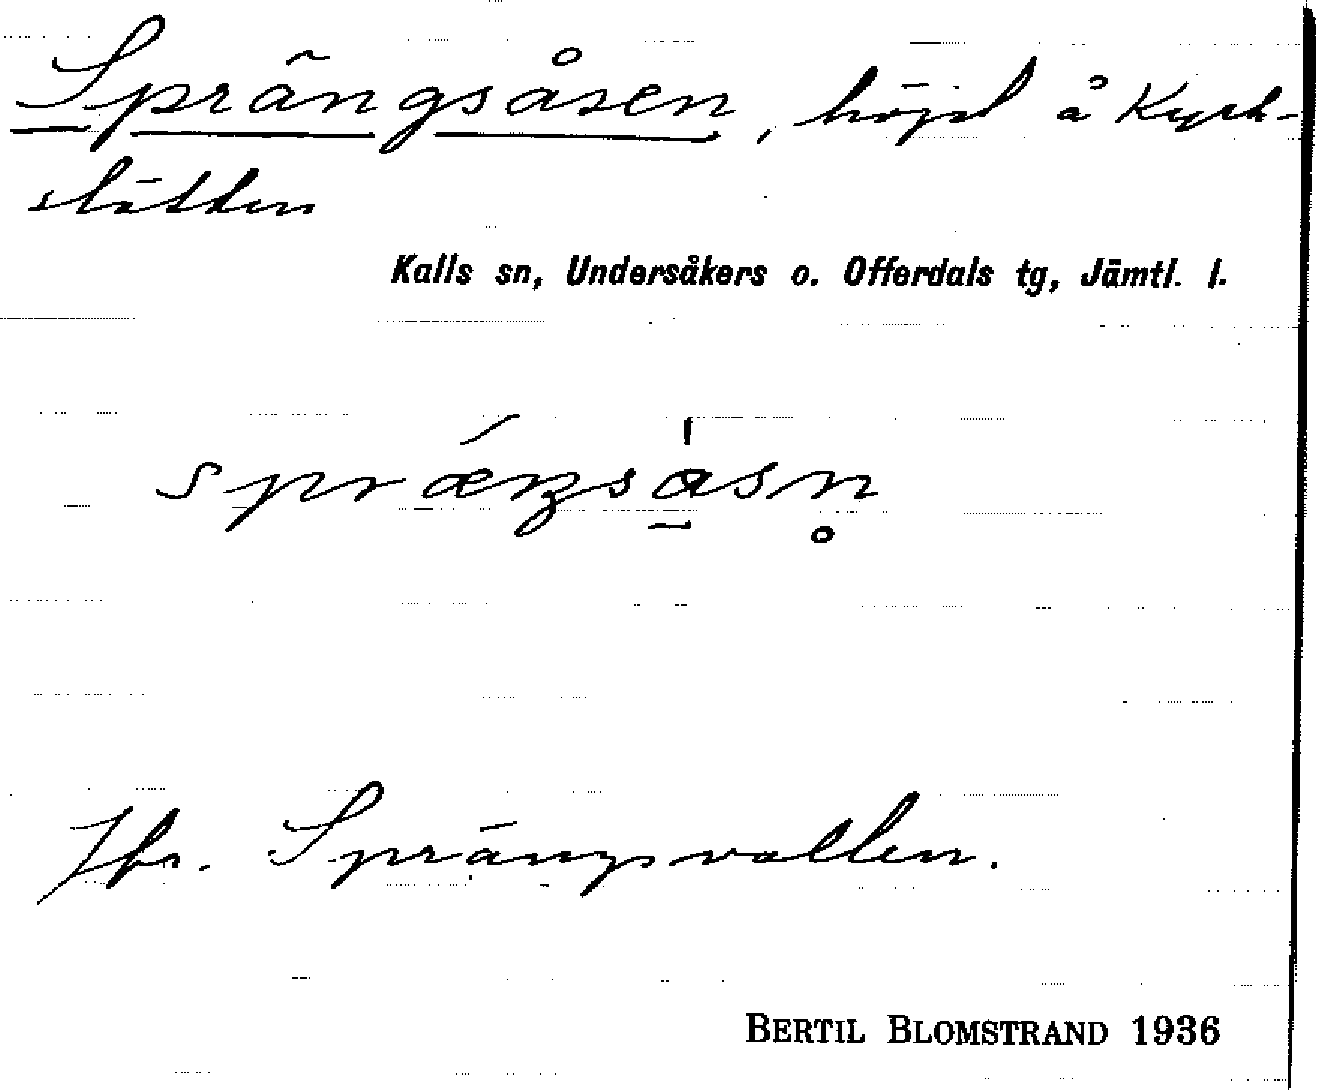 Sprängsåsen, höjd å Kyrk-
slätten
Kalls sn, Undersåkers o. Offerdals tg, Jämtl. l.
spráŋsàsn̥
Jfr. Sprängsvallen.
BERTIL BLOMSTRAND 1936